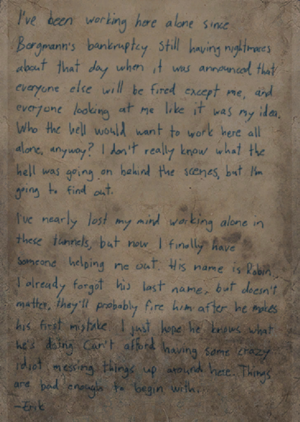 I've been working here alone since
Borgmann's bankruptcy. Still having nightmares
about that day when it was announced that
everyone else will be fired except me, and
everyone looking at me like it was my idea.
Who the hell would want to work here all
alone, anyway? I don't really know what the
hell was going on behind the scenes, but I'm
going to find out.
I've nearly lost my mind working alone in
these tunnels, but now I finally have
someone helping me out. His name is Robin.
I already forgot his last name, but doesn't
matter, they'll probably fire him after he makes
his first mistake. I just hope he knows what
he's doing. Can't afford having some crazy
idiot messing things up around here. Things
are bad enough to begin with.
-Erik